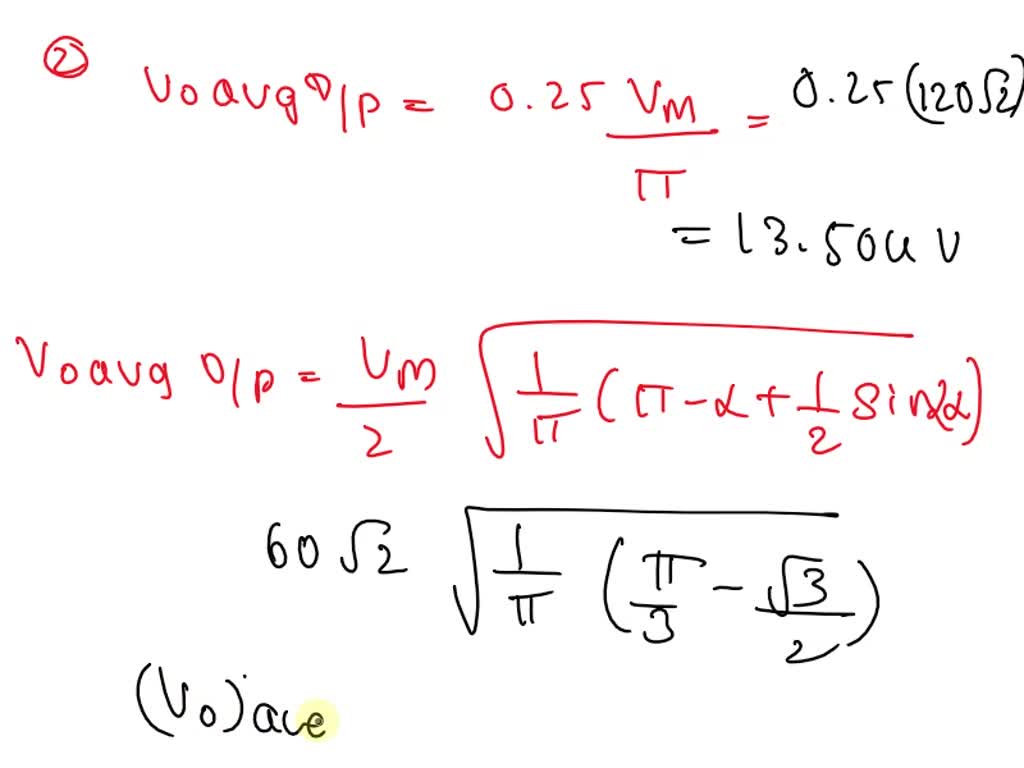 ②
V₀avg O/p = 0.25 Vm/π = 0.25(120√2)
= 13.504 V
V₀avg O/p = Vm/2 √(1/π (π-α+1/2 sin2α))
60√2 √(1/π (π/3 - √3/2))
(V₀)ave